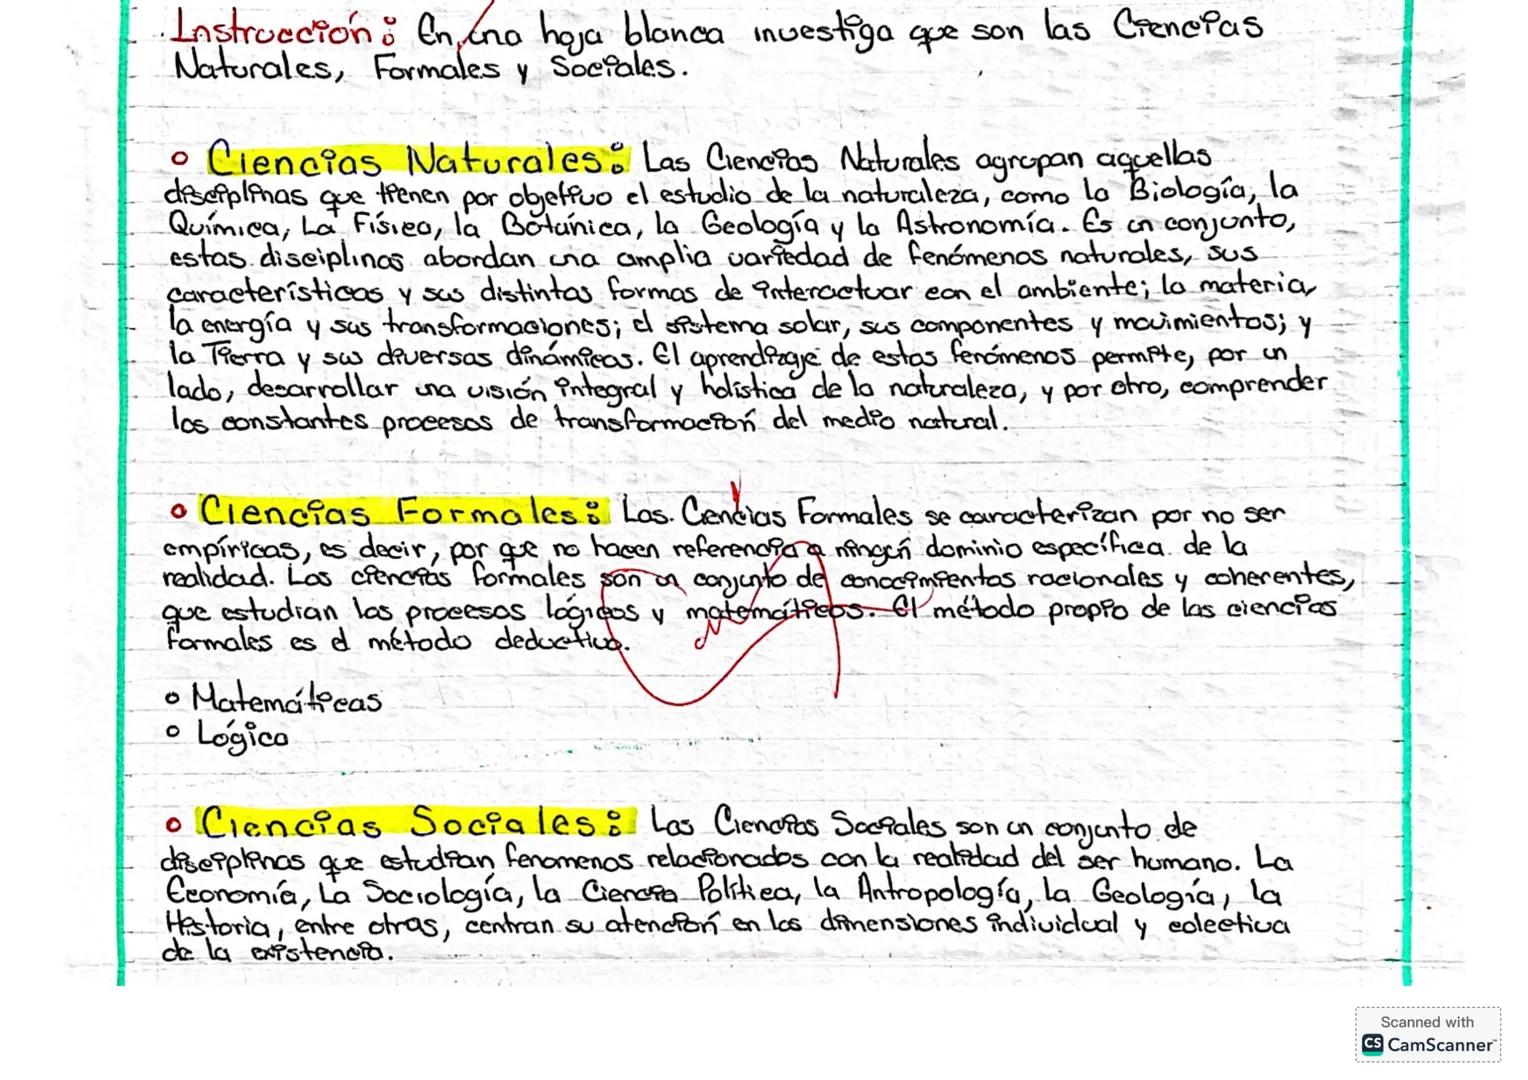 Instrucción: En una hoja blanca investiga que son las Ciencias
Naturales, Formales y Sociales.
Ciencias Naturales: Las Ciencias Naturales agrupan aquellas
disciplinas que tienen por objetivo el estudio de la naturaleza, como la Biología, la
Química, La Física, la Botánica, la Geología y la Astronomía. Es un conjunto,
estas disciplinas abordan una amplia variedad de fenómenos naturales, sus
características y sus distintas formas de interactuar con el ambiente; la materia,
la energía y sus transformaciones; el sistema solar, sus componentes y movimientos; y
la Tierra y sus diversas dinámicas. El aprendizaje de estos fenómenos permite, por un
lado, desarrollar una visión integral y holística de la naturaleza, y por otro, comprender
los constantes procesos de transformación del medio natural.
Ciencias Formales: Las. Ciencias Formales se caracterizan por no ser
empíricas, es decir, por que no hacen referencia a ningún dominio específica de la
realidad. Las ciencias formales son un conjunto de conocimientos racionales y coherentes,
que estudian los procesos lógicos y matemáticos. El método propio de las ciencias
formales es el método deductivo.
Matemáticas
Lógica
Ciencias Sociales: Las Ciencias Sociales son un conjunto de
disciplinas que estudian fenomenos relacionados con la realidad del ser humano. La
Economía, La Sociología, la Ciencia Política, la Antropología, la Geología, la
Historia, entre otras, centran su atención en las dimensiones individual y colectiva
de la existencia.
Scanned with
CS CamScanner